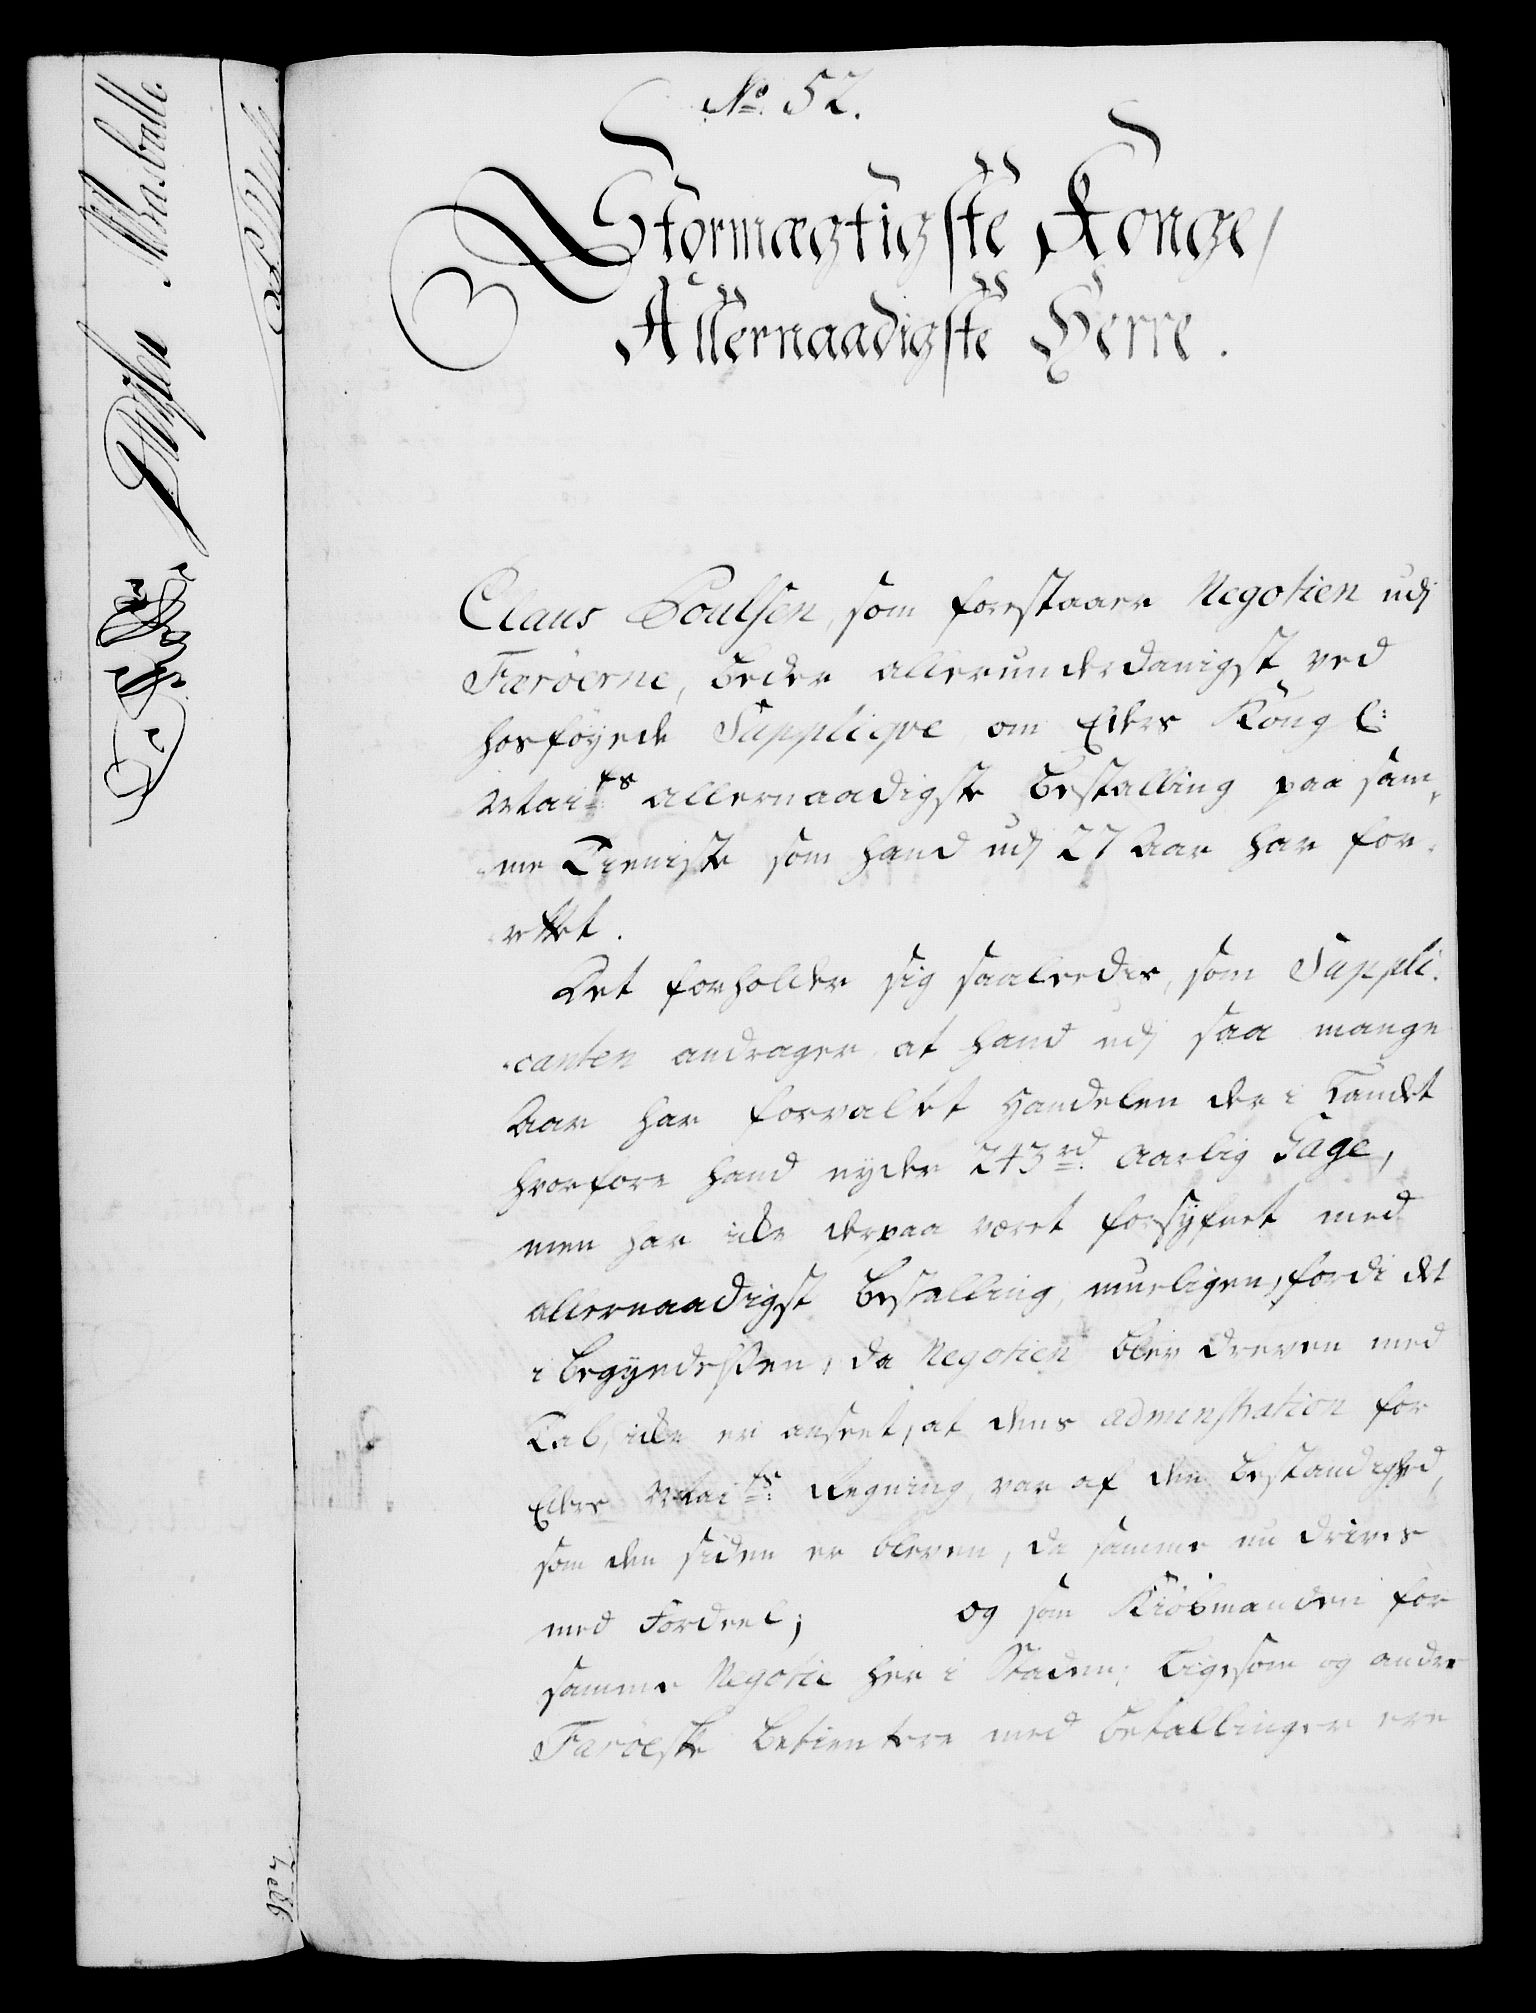 No. 52.
Stormægtigste Konge,
Allernaadigste Herre.
Claus Poulsen, som forstaaer Negotien udj
Færöerne, beder allerunderdanigst ved
hosföyede Supplique om Eders Kongl:
Maits allernaadigste Bestalling paa sam-
me Tieniste som hand udj 27 Aar har for-
rettet.
Det forholder sig saaledes, som Suppli-
canten andrager, at hand udj saa mange
Aar har forvaltet Handelen der i Landet
hvorfore hand nyder 243 rd. Aarlig Gage,
men har icke derpaa været forsÿfnet med
allernaadigst Bestalling, mueligen, fordi det
i begyndelsen, da Negotien blev dreven med
Tab, icke er anseet, at dens administration for
Eders Maits: Regning var af den Bestandighed,
som den siden er bleven, da samme nu drives
med Fordeel; og som Kiöbmanden for
samme Negotie her i Staden, ligesom og andre
Færöeske Betientere med Bestallinger ere